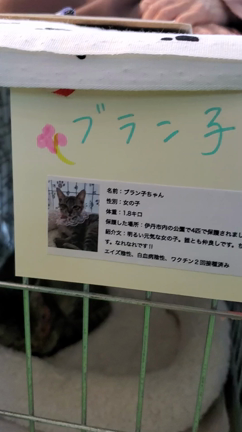 ブラン子
名前：ブラン子ちゃん
性別：女の子
体重：1.8キロ
保護した場所：伊丹市内の公園で4匹で保護されまし
紹介文：明るい元気な女の子。誰とも仲良しです。ち
す。なれなれです!!
エイズ陰性、白血病陰性、ワクチン2回接種済み